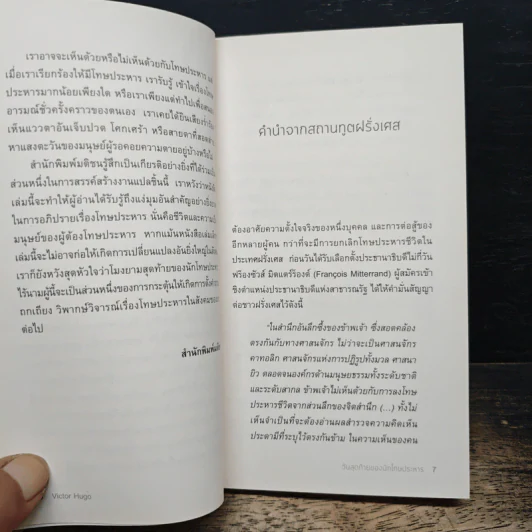 เราอาจจะเห็นด้วยหรือไม่เห็นด้วยกับโทษประหาร แต่
เมื่อเราเรียกร้องให้มีโทษประหาร เรารับรู้ เข้าใจเรื่องโทษ
ประหารมากน้อยเพียงใด หรือเราเพียงแต่ทำไปเพื่อ
อารมณ์ชั่วครั้งคราวของตนเอง เราเคยได้ยินเสียง
เห็นแววตาอันเจ็บปวด โศกเศร้า หรือสายตาที่
หาแสงตะวันของมนุษย์ผู้รอคอยความตายอยู่บ้างหรือไม่
สำนักพิมพ์มติชนรู้สึกเป็นเกียรติอย่างยิ่งที่ได้ร่วมเป็น
ส่วนหนึ่งในการสรรค์สร้างงานแปลชิ้นนี้ เราหวังว่าหนังสือ
เล่มนี้จะทำให้ผู้อ่านได้รับรู้ถึงแง่มุมอันสำคัญอย่างยิ่ง
ในการอภิปรายเรื่องโทษประหาร นั่นคือชีวิตและความเป็น
มนุษย์ของผู้ต้องโทษประหาร หากแม้นหนังสือเล่ม
เล่มนี้จะไม่อาจก่อให้เกิดการเปลี่ยนแปลงอันยิ่งใหญ่
เราก็ยังหวังสุดหัวใจว่าโมงยามสุดท้ายของนักโทษประหาร
ไร้นามผู้นี้จะเป็นส่วนหนึ่งของการกระตุ้นให้เกิดการตั้งคำ
ถกเถียง วิพากษ์วิจารณ์เรื่องโทษประหารในสังคมของ
ต่อไป
สำนักพิมพ์มติชน
Victor Hugo
คำนำจากสถานทูตฝรั่งเศส
ต้องอาศัยความตั้งใจจริงของหนึ่งบุคคล และการต่อสู้ของ
อีกหลายผู้คน กว่าที่จะมีการยกเลิกโทษประหารชีวิตใน
ประเทศฝรั่งเศส ก่อนวันได้รับเลือกตั้งประธานาธิบดีไม่กี่วัน
ฟรีองซัวส์ มิตแตร์ร็องด์ (François Mitterrand) ผู้สมัครเข้า
ชิงตำแหน่งประธานาธิบดีแห่งสาธารณรัฐ ได้ให้คำมั่นสัญญา
ต่อชาวฝรั่งเศสไว้ดังนี้
"ในสำนึกอันลึกซึ้งของข้าพเจ้า ซึ่งสอดคล้อง
ตรงกันกับทางศาสนจักร ไม่ว่าจะเป็นศาสนจักร
คาทอลิก ศาสนจักรแห่งการปฏิรูปทั้งมวล ศาสนา
ยิว ตลอดจนองค์กรด้านมนุษยธรรมทั้งระดับชาติ
และระดับสากล ข้าพเจ้าไม่เห็นด้วยกับการลงโทษ
ประหารชีวิตจากส่วนลึกของจิตสำนึก (...) ทั้งไม่
เห็นจำเป็นที่จะต้องอ่านผลสำรวจความคิดเห็น
ประดามีที่ระบุไว้ตรงกันข้าม ในความเห็นของคน
วันสุดท้ายของนักโทษประหาร 7